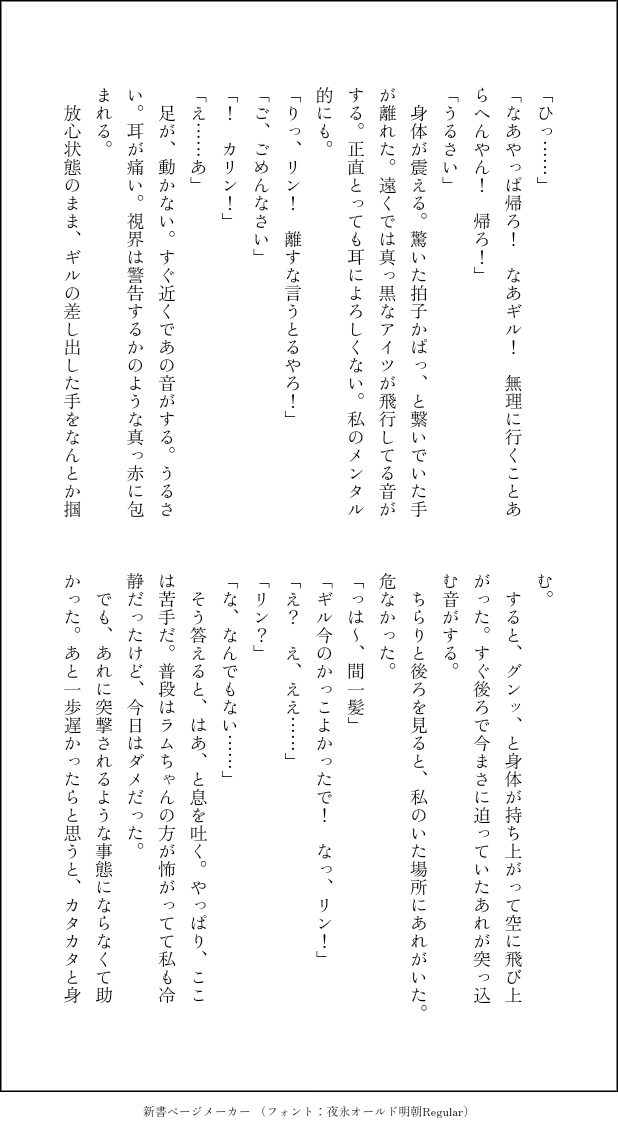 「ひっ……」
「なあやっぱ帰ろ！　なあギル！　無理に行くことあ
らへんやん！　帰ろ！」
「うるさい」
　身体が震える。驚いた拍子かぱっ、と繋いでいた手
が離れた。遠くでは真っ黒なアイツが飛行してる音が
する。正直とっても耳によろしくない。私のメンタル
的にも。
「りっ、リン！　離すな言うとるやろ！」
「ご、ごめんなさい」
「！　カリン！」
「え……あ」
　足が、動かない。すぐ近くであの音がする。うるさ
い。耳が痛い。視界は警告するかのような真っ赤に包
まれる。
　放心状態のまま、ギルの差し出した手をなんとか掴
む。
　すると、グンッ、と身体が持ち上がって空に飛び上
がった。すぐ後ろで今まさに迫っていたあれが突っ込
む音がする。
　ちらりと後ろを見ると、私のいた場所にあれがいた。
危なかった。
「っは〜、間一髪」
「ギル今のかっこよかったで！　なっ、リン！」
「え？　え、ええ……」
「リン？」
「な、なんでもない……」
　そう答えると、はあ、と息を吐く。やっぱり、ここ
は苦手だ。普段はラムちゃんの方が怖がってて私も冷
静だったけど、今日はダメだった。
　でも、あれに突撃されるような事態にならなくて助
かった。あと一歩遅かったらと思うと、カタカタと身
新書ページメーカー （フォント：夜永オールド明朝Regular）